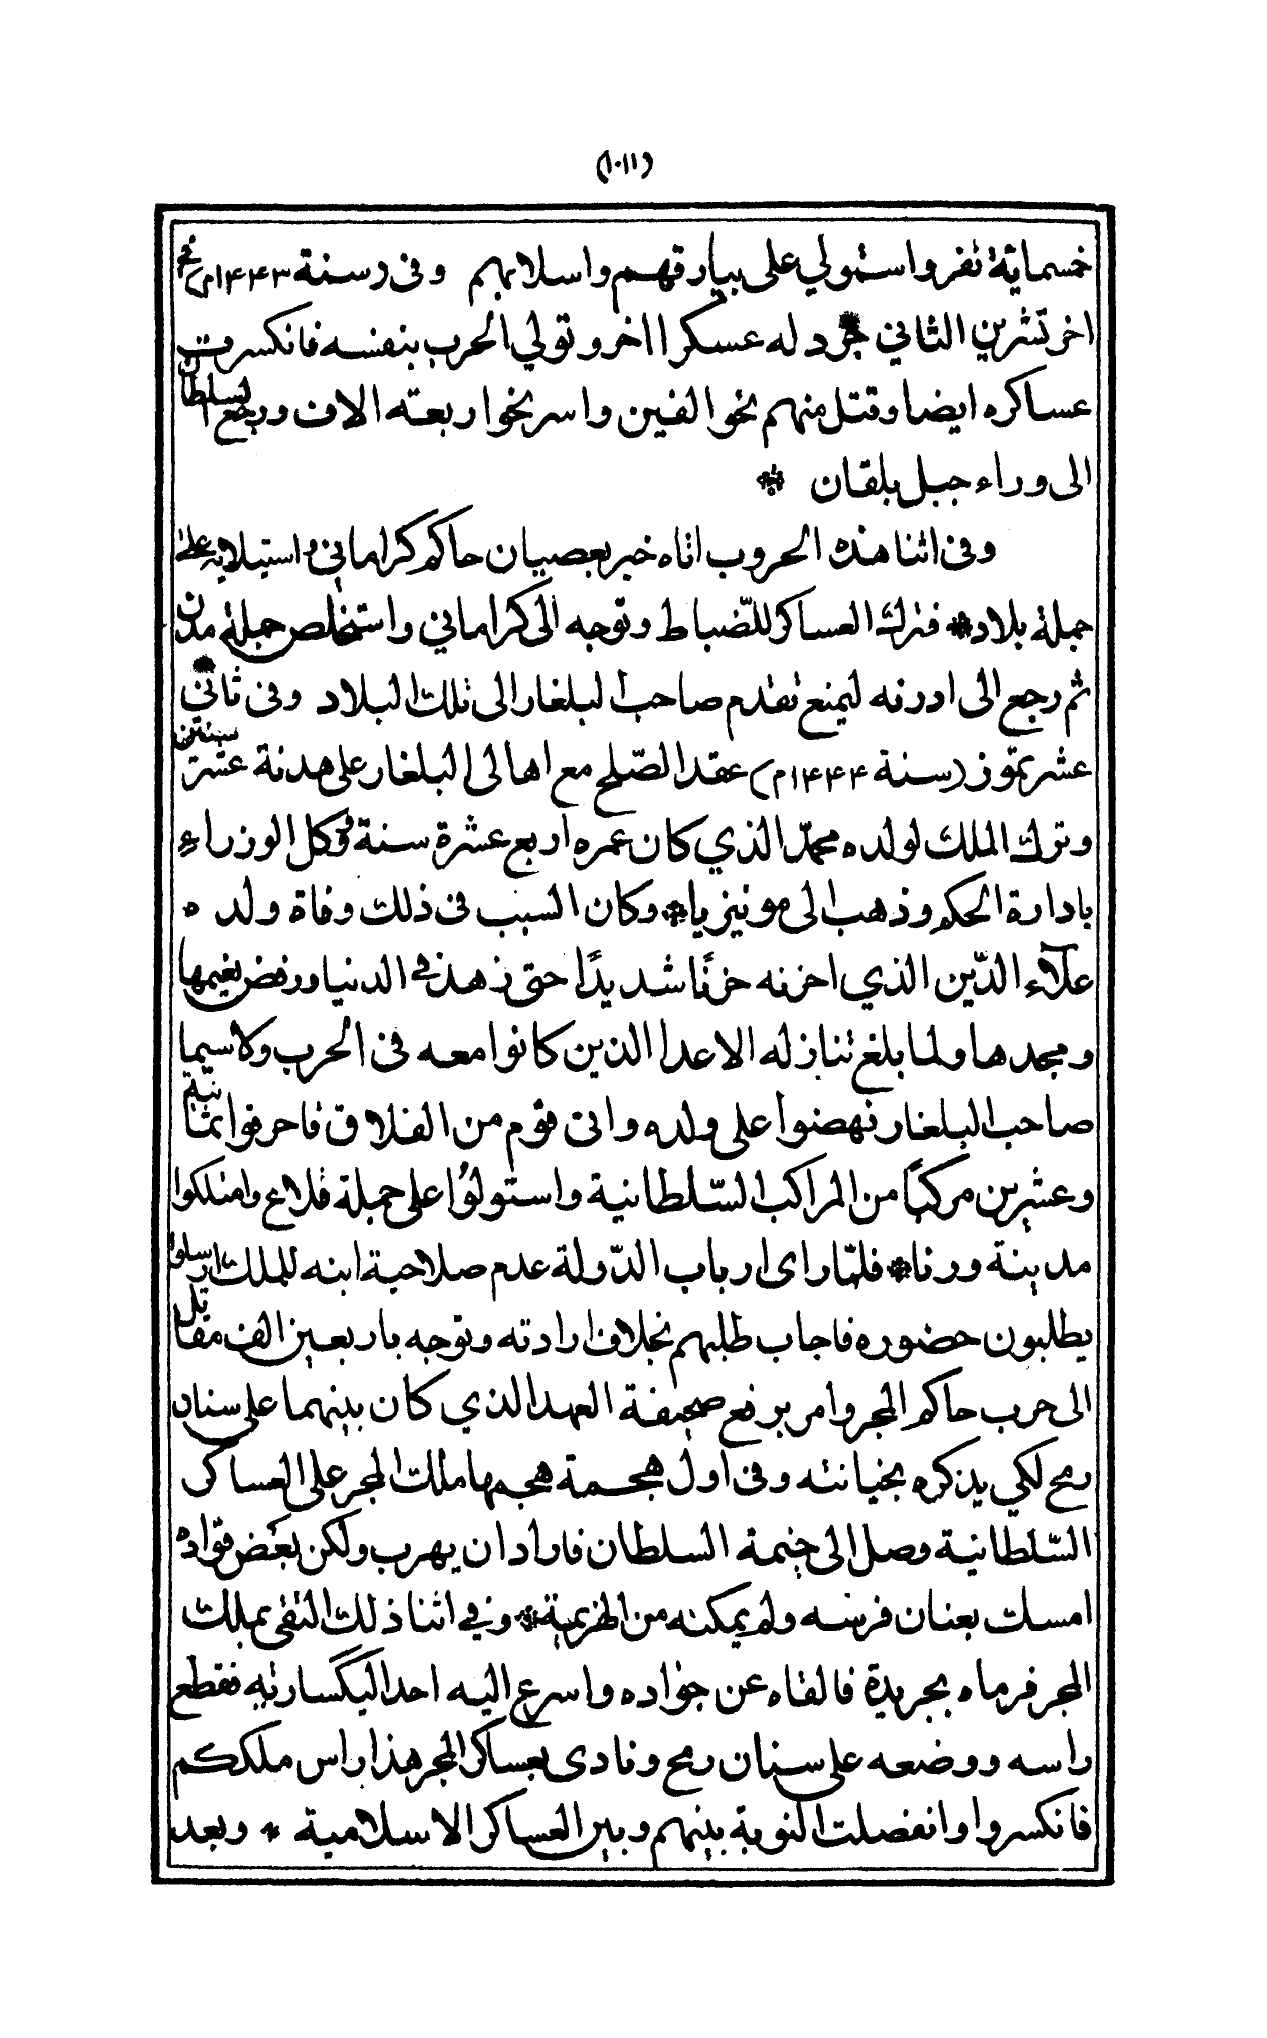 (١٠١١)
خسماية نفر واستولي على بيارقهم واسلابهم وفى (سنة ١٤٤٣م) فى
اخر تشرين الثاني جرد له عسكرا اخر وتولي الحرب بنفسه فانكسرت
عساكره ايضا وقتل منهم نحو الفين واسر نحوا ربعته الاف ورجع السلطان
الى وراء جبل بلقان *
وفى اثنا هذه الحروب اتاه خبر بعصيان حاكم كراماني واستيلايه على
جملة بلاد * فترك العساكر للضّباط وتوجه الى كراماني واستخلص جملة مدن
ثم رجع الى ادرنه ليمنع تقدم صاحب البلغار الى تلك البلاد وفى ثانى
عشر تموز (سنة ١٤٤٤م) عقد الصّلح مع اهالى البلغار على هدنة عشر سنين
وترك الملك لولده محمّد الذي كان عمره اربع عشرة سنة فوكل الوزراء
بادارة الحكم وذهب الى مونيزيا * وكان السبب فى ذلك وفاة ولده
علآء الدّين الذي احزنه حزنًا شديدًا حتى زهد في الدنيا ورفض نعيمها
ومجدها ولما بلغ تنازله الاعدا الذين كانوا معه فى الحرب ولاسيما
صاحب البلغار نهضوا على ولده واتى قوم من الفلاق فاحرقوا ثمانية
وعشرين مركبًا من المراكب السّلطانية واستولوا على جملة قلاع وامتلكوا
مدينة ورنا * فلمّا راى ارباب الدّولة عدم صلاحية ابنه للملك ارسلوا
يطلبون حضوره فاجاب طلبهم بخلاف ارادته وتوجه باربعين الف مقاتل
الى حرب حاكم المجر وامر برفع صحيفة العهد الذي كان بينهما على سنان
رمح لكي يذكره بخيانته وفى اول هجمة هجمها ملك المجر على العساكر
السّلطانية وصل الى خيمة السلطان فاراد ان يهرب ولكن بعض قواده
امسك بعنان فرسه ولم يمكنه من الهزيمة * وفي اثنا ذلك التقى بملك
المجر فرماه بجريدة فالقاه عن جواده واسرع اليه احد اليكسارية فقطع
راسه ووضعه على سنان رمح ونادى بعساكر المجر هذا راس ملككم
فانكسروا وانفصلت النوبة بينهم وبين العساكر الاسلامية * وبعد